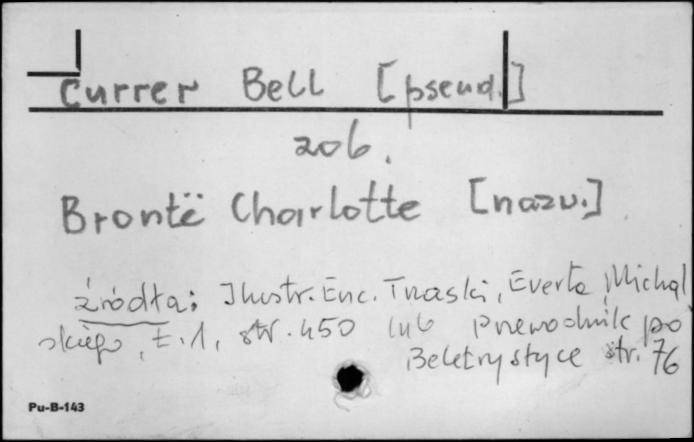 Currer Bell [pseud.]
zob.
Brontë Charlotte [nazw.]
źródła: Ilustr. Enc. Trzaski, Everta, Michal
skiego, t. 1, str. 450 lub Przewodnik po
Beletrystyce str. 76
Pu-B-143